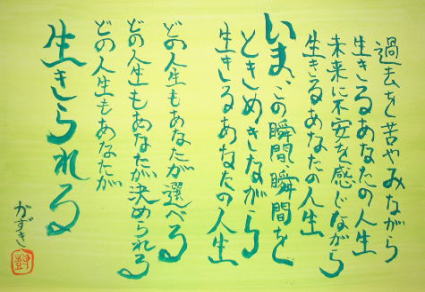 過去を苦やみながら
生きるあなたの人生
未来に不安を感じながら
生きるあなたの人生
いま、この瞬間、瞬間を
ときめきながら
生きるあなたの人生
どの人生もあなたが選べる
どの人生もあなたが決められる
どの人生もあなたが
生きられる
かずき